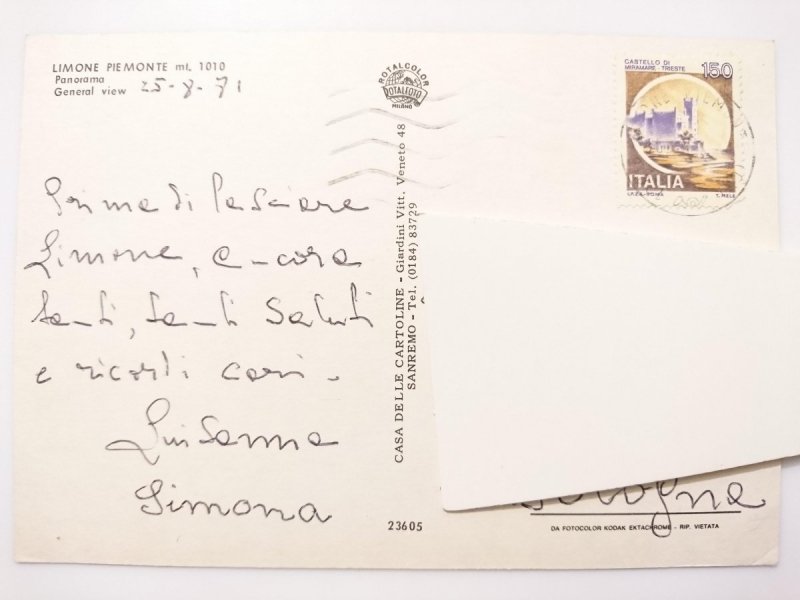 LIMONE PIEMONTE mt. 1010
Panorama
General view 25-8-71
Prima di lasciare
Limone, ancora
tanti, tanti saluti
e ricordi cari -
Luisanna
Simona
ROTALCOLOR
ROTALFOTO
MILANO
CASA DELLE CARTOLINE - Giardini Vitt. Veneto 48
SANREMO - Tel. (0184) 83729
23605
CASTELLO DI
MIRAMARE - TRIESTE
150
ITALIA
I.P.Z.S. ROMA
T. MELE
Bologna
DA FOTOCOLOR KODAK EKTACHROME - RIP. VIETATA